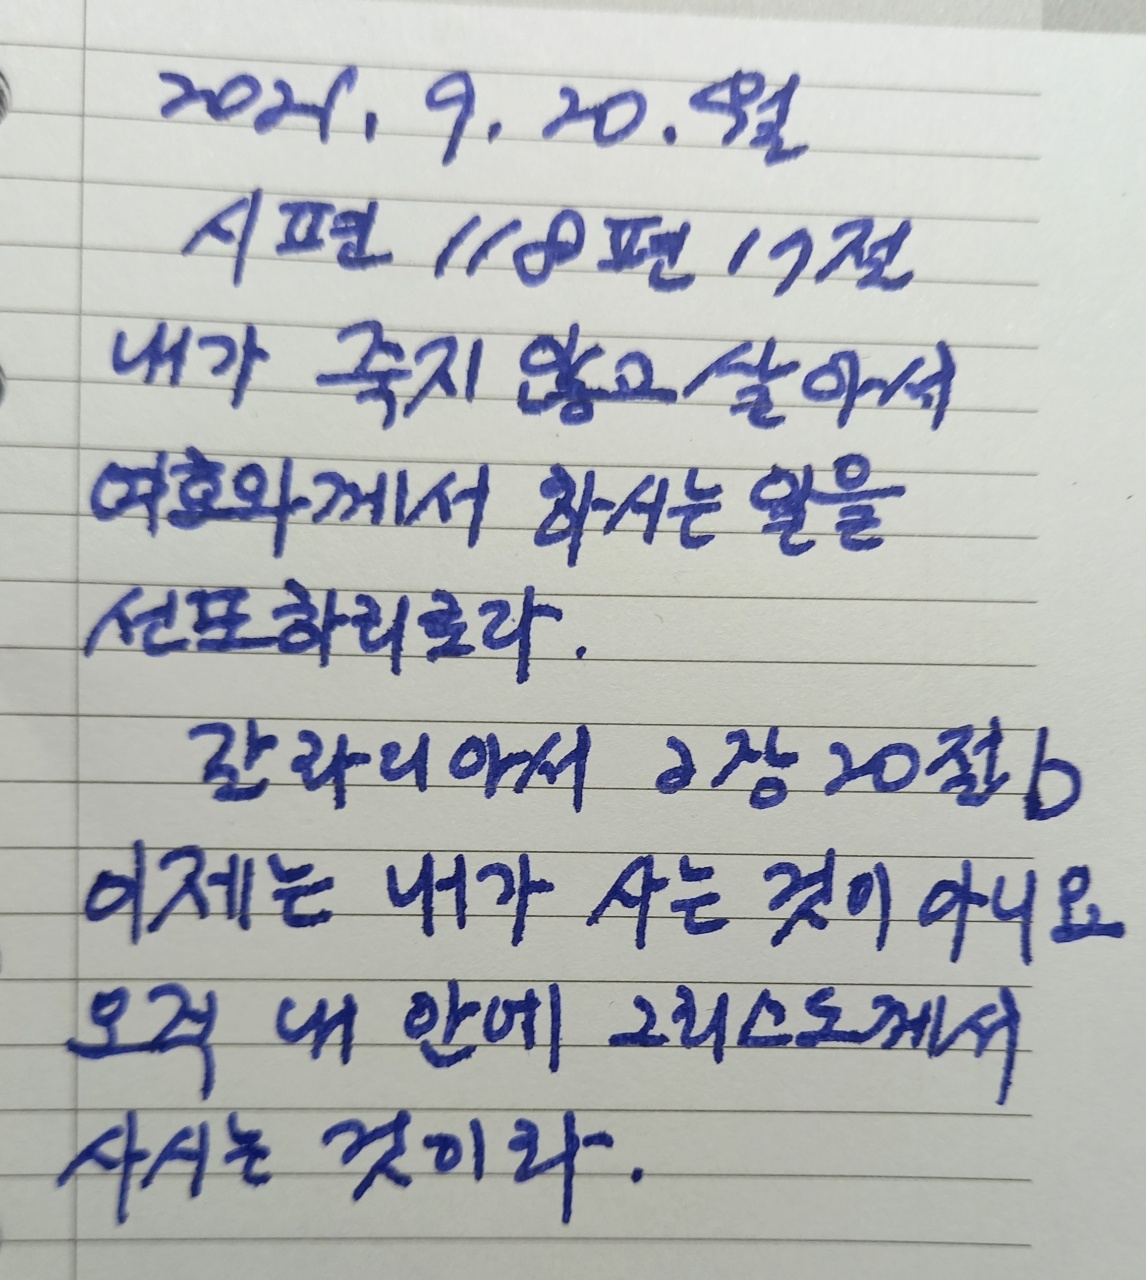 2021. 9. 20. 월
시편 118편 17절
내가 죽지 않고 살아서
여호와께서 하시는 일을
선포하리로라.
갈라디아서 2장 20절b
이제는 내가 사는 것이 아니요
오직 내 안에 그리스도께서
사시는 것이라.